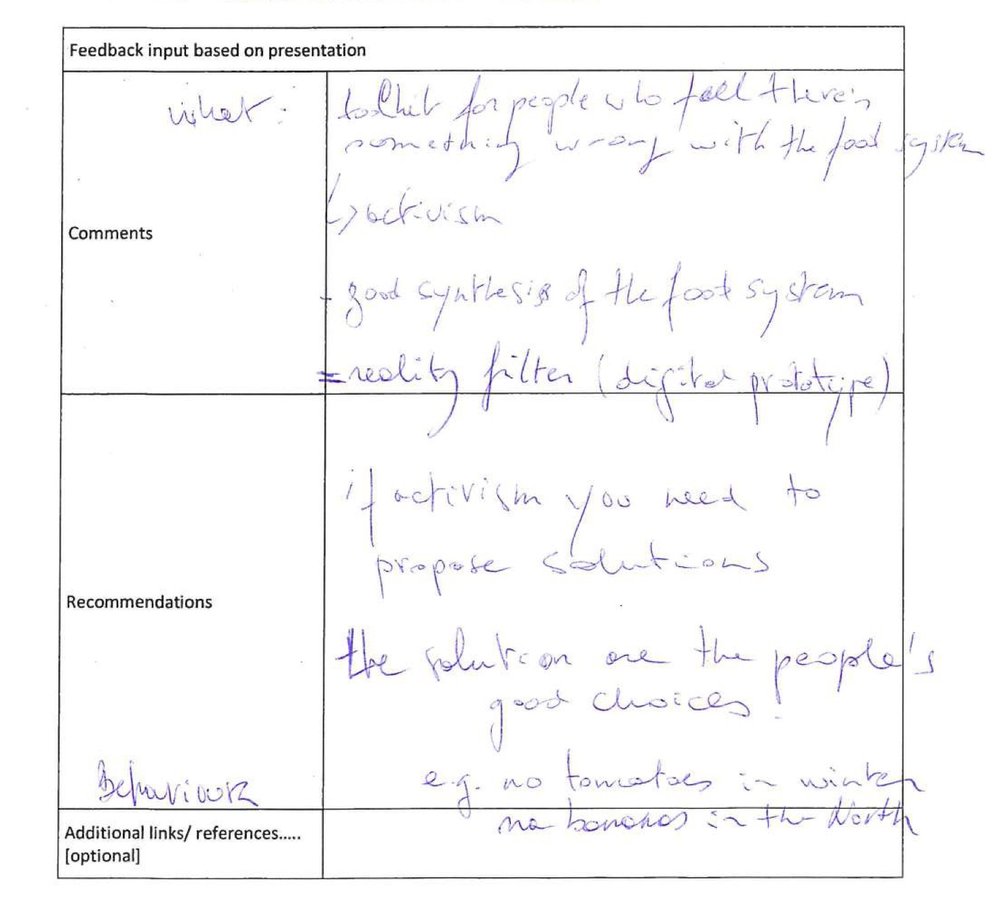 Feedback input based on presentation
what:
toolkit for people who feel there's
something wrong with the food system
Comments
↳ activism
- good synthesis of the food system
= reality filter (digital prototype)
if activism you need to
propose solutions
Recommendations
the solution are the people's
good choices!
Behaviour
e.g. no tomatoes in winter
no bananas in the North
Additional links/ references.....
[optional]